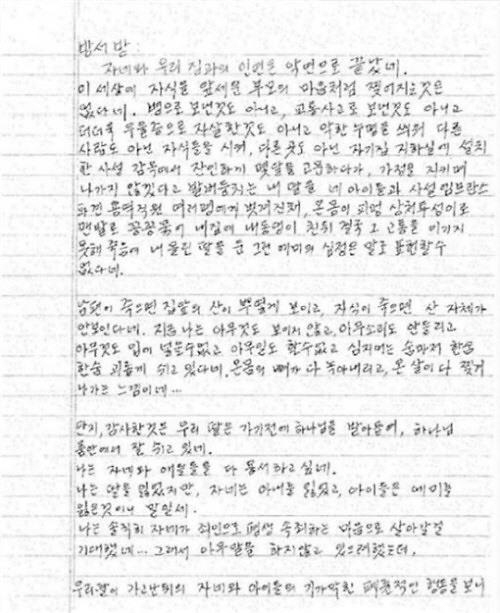 방서방:
자네와 우리 집과의 인연은 악연으로 끝났네.
이 세상에 자식을 앞세운 부모의 마음처럼 찢어지는것은
없다네. 병으로 보낸것도 아니고, 교통사고로 보낸것도 아니고
더더욱 우울증으로 자살한것도 아니고 악한 누명을 씌워 다른
사람도 아닌 자식들을 시켜, 다른 곳도 아닌 자기집 지하실에 설치
한 사설 감옥에서 잔인하게 몇달을 고문하다가, 가정을 지키며
나가지 않겠다고 발버둥치는 내 딸을 네 아이들과 사설 엠브란스
파견 용역직원 여러명에게 벗겨진채, 온몸의 피멍 상처투성이로
맨발로 꽁꽁묶어 내집에 내동댕이 친뒤 결국 그 고통을 이기지
못해 죽음에 내 몰린 딸을 둔 그런 에미의 심정은 말로 표현할수
없다네.
남편이 죽으면 집앞의 산이 뿌옇게 보이고, 자식이 죽으면 산 자체가
안보인다네. 지금 나는 아무것도 보이지 않고, 아무소리도 안들리고
아무것도 입에 넣을수없고 아무일도 할수없고 심지어는 숨마저 한숨
한숨 괴롭게 쉬고 있다네. 온몸의 뼈가 다 녹아내리고, 온 살이 다 찢겨
나가는 느낌이네…
단지, 감사한것은 우리 딸은 가기전에 하나님을 받아들여, 하나님
품안에서 잘 쉬고 있네.
나는 자네와 애들을 다 용서하고 싶네.
나는 딸을 잃었지만, 자네는 아내를 잃었고, 아이들은 에미를
잃은것이니 말일세.
나는 솔직히 자네가 죄인으로 평생 속죄하는 마음으로 살아갈걸
기대했네… 그래서 아무말을 하지않고 있으려했는데,
우리딸이 가고난뒤의 자네와 아이들의 기가막힌 패륜적인 행동을 보니